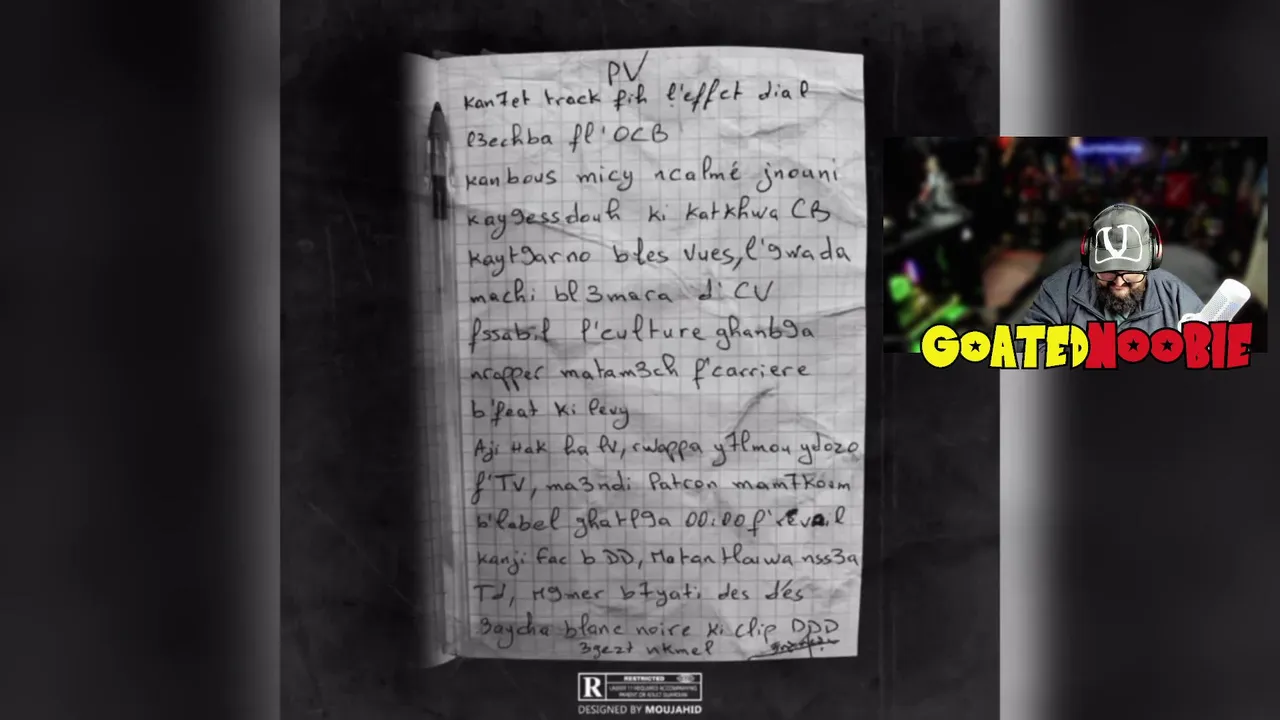 PV
kan7et track fih l'effet dial
l3echba fl'OCB
kanbous micy ncalmé jnouni
kay9essdouh ki katkhwa CB
kayt9arno bles vues, l'9wada
machi bl3mara d'CV
fssabil l'culture ghanb9a
nrapper matam3ch f'carriere
b'feat ki levy
Aji Hak ha PV, rwappa y7lmou ydozo
f'TV, ma3ndi Patron mam7koum
b'label ghatl9a 00:00 f'réveil
kanji fac b DD, nss3a
Td, m9mer b7yati des dés
3aycha blanc noire ki clip DDD
3gezt nkmel
R
RESTRICTED
DESIGNED BY MOUJAHID
GOATEDNOOBIE